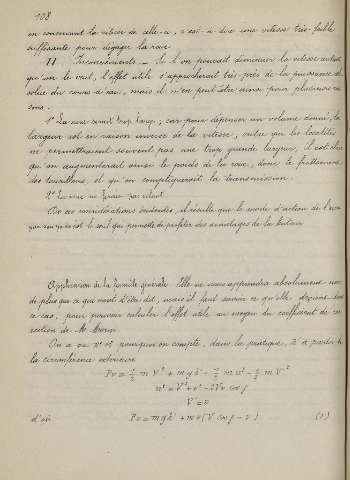 108
en conservant la vitesse de celle-ci, c'est-à-dire une vitesse très-faible
suffisante pour dégager la roue.
11. Inconvénients. — Si l'on pouvait diminuer la vitesse autant
qu'on le veut, l'effet utile s'approcherait très-près de la puissance ab-
solue du cours d'eau, mais il n'en peut être ainsi pour plusieurs rai-
sons.
1° La roue serait trop large; car pour dépenser un volume donné, la
largeur est en raison inverse de la vitesse, outre que les localités
ne permettraient souvent pas une trop grande largeur, il est clair
qu'on augmenterait ainsi le poids de la roue, donc le frottement
des tourillons, et qu'on compliquerait la transmission.
2° La roue ne
De ces considérations il résulte que le mode d'action de l'eau
est le seul qui permette de profiter des avantages de la
Application de la formule générale Elle ne nous apprendra absolument rien
de plus que ce qui vient d'être dit, mais il faut savoir ce qu'elle devient dans
ce cas, pour pouvoir calculer l'effet utile au moyen du coefficient de cor-
rection de M. Morin.
On a vu pourquoi on compte, dans la pratique, h' à partir de
la circonférence extérieure
Pv = 1/2 m V² + m g h' - 1/2 m w² - 1/2 m V'²
w² = V² + v² - 2Vv cos γ
V' = v
d'où Pv = m g h' + m v (V cos γ - v) (1)